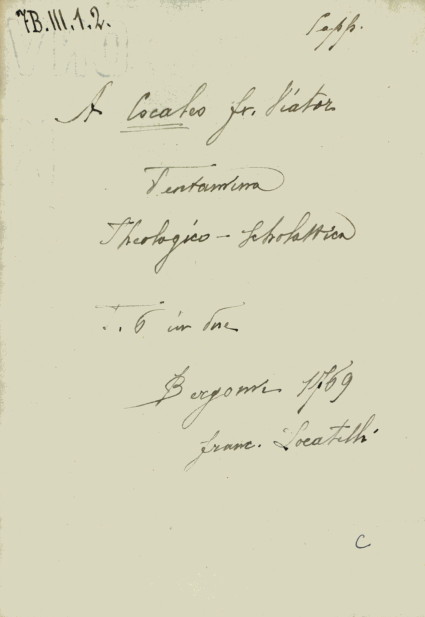 7B.III.1.2.
A Cocaleo fr. Viator
Tentamina
Theologico-Scholastica
T. 6 in due
Bergomi 1769
franc. Locatelli
C